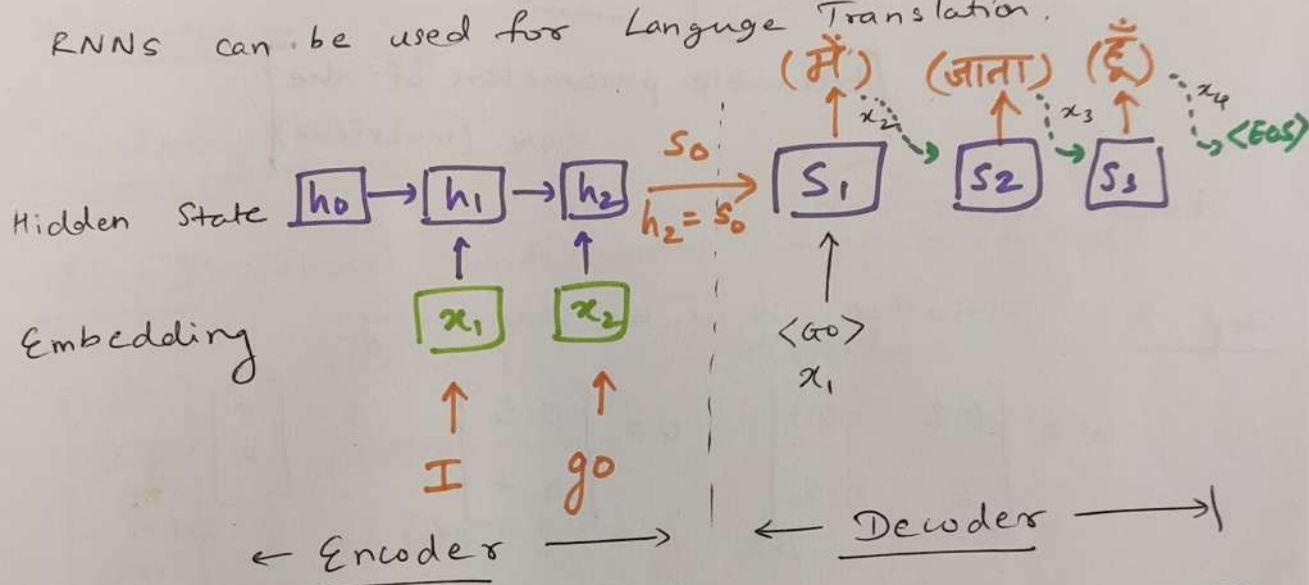 RNNs can be used for Languge Translation.
(में) (जाता) (हूँ)
x₂ x₃ x₄
<EOS>
S₀
Hidden State h₀ h₁ h₂ h₂ = S₀ S₁ S₂ S₃
Embedding x₁ x₂ <GO>
x₁
I go
Encoder Decoder